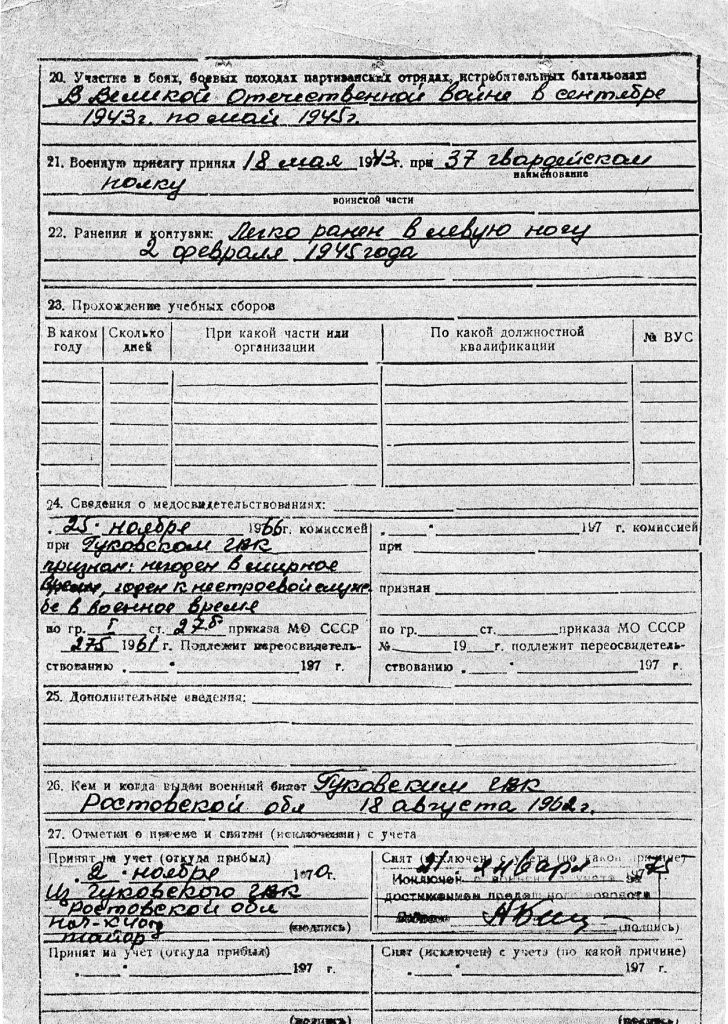 20. Участие в боях, боевых походах партизанских отрядах, истребительных батальонах
В Великой Отечественной войне в сентябре
1943г. по май 1945г.
21. Военную присягу принял 18 мая 1943г. при 37 гвардейском
наименование
полку
воинской части
22. Ранения и контузии: Легко ранен в левую ногу
2 февраля 1945 года
23. Прохождение учебных сборов
В каком году Сколько дней При какой части или организации По какой должностной квалификации № ВУС
24. Сведения о медосвидетельствованиях:
„25“ ноября 1966г. комиссией
при Гуковском ГВК
признан: негоден в мирное
время, годен к нестроевой служ-
бе в военное время
по гр. I ст. 27б приказа МО СССР
275 1961 г. Подлежит переосвидетель-
ствованию „ “ 197 г.
„ “ 197 г. комиссией
при
признан
по гр. ст. приказа МО СССР
№ 19 г. подлежит переосвидетель-
ствованию „ “ 197 г.
25. Дополнительные сведения:
26. Кем и когда выдан военный билет Гуковским ГВК
Ростовской обл 18 августа 1962г.
27. Отметки о приеме и снятии (исключении) с учета
Принят на учет (откуда прибыл)
„2“ ноября 1970г.
Из Гуковского ГВК
Ростовской обл
майор (подпись)
Снят (исключен) с учета (по какой причине)
21 января 1975
Исключен с воинского учета
достижением предельного возраста
(подпись)
Принят на учет (откуда прибыл)
„ “ 197 г.
(подпись)
Снят (исключен) с учета (по какой причине)
„ “ 197 г.
(подпись)